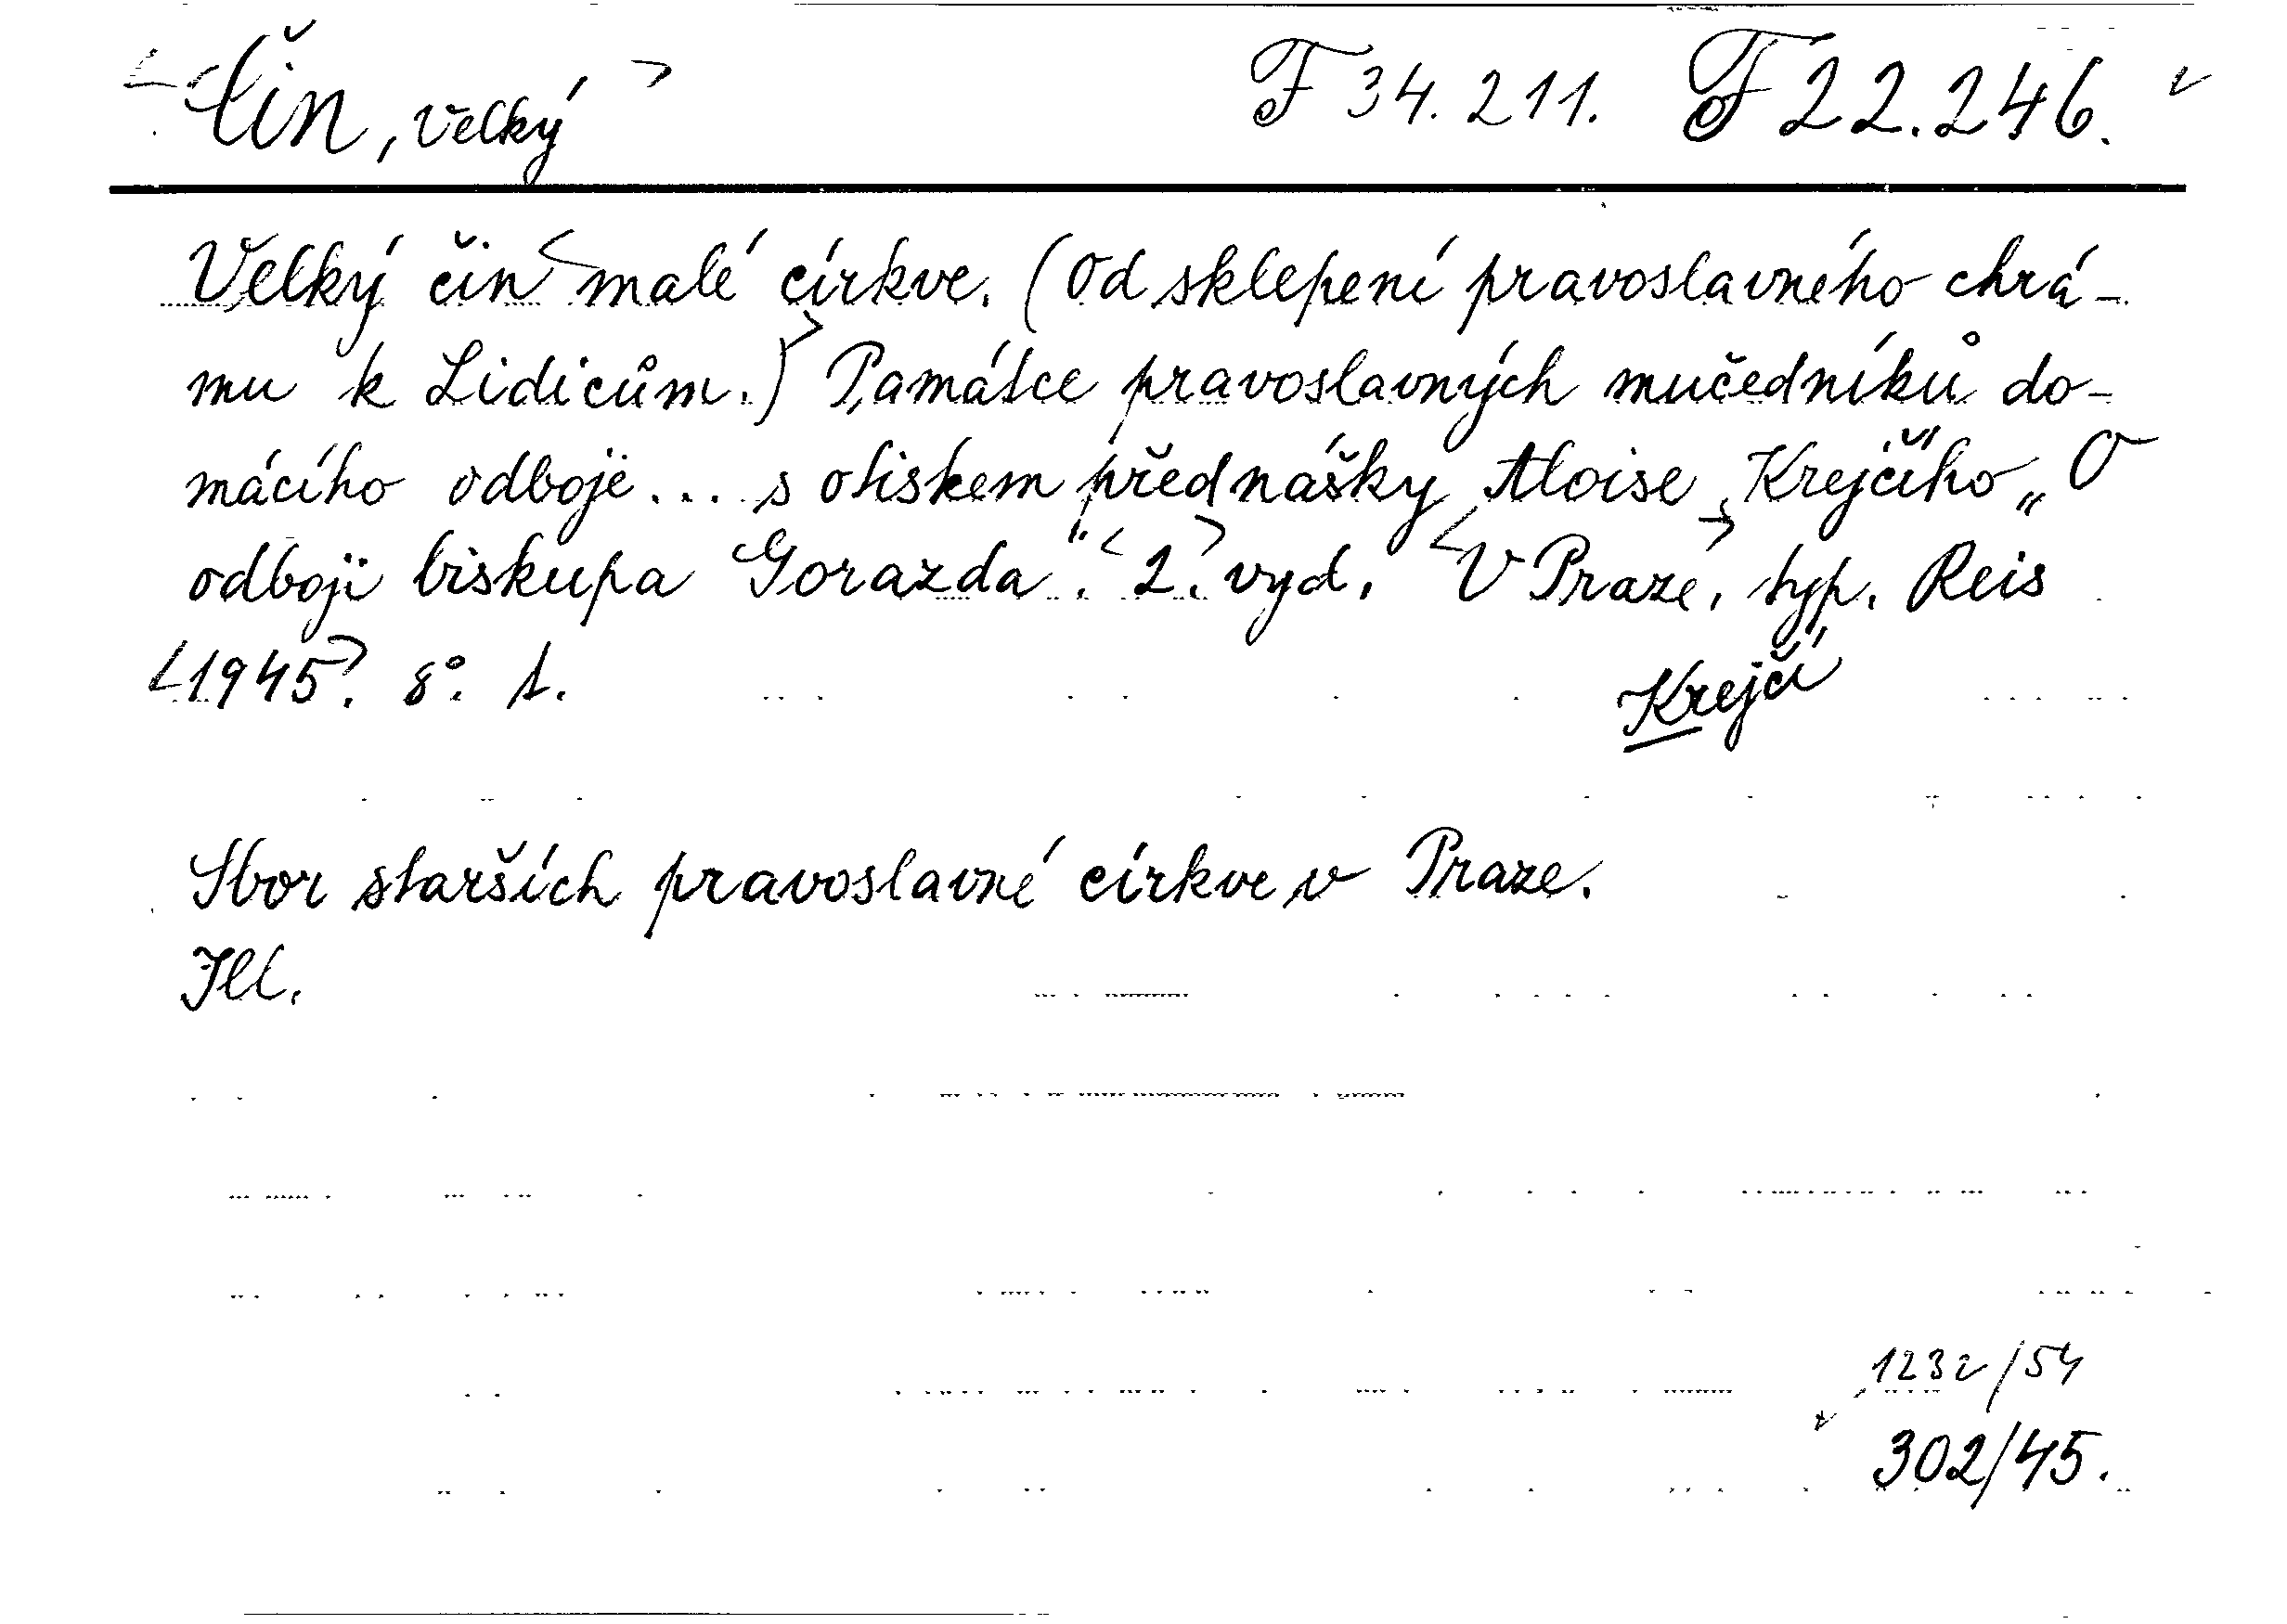 <Čin, velký> F 34.211. F 22.246.
Velký čin <malé církve. (Od sklepení pravoslavného chrá-
mu k Lidicům.)> Památce pravoslavných mučedníků do-
mácího odboje ... s otiskem přednášky Aloise Krejčího „O
odboji biskupa Gorazda“. <2.> vyd. <V Praze>, typ. Reis
<1945>. 8°. t.
Krejčí
Sbor starších pravoslavné církve v Praze.
Ill.
1232/54
302/45.